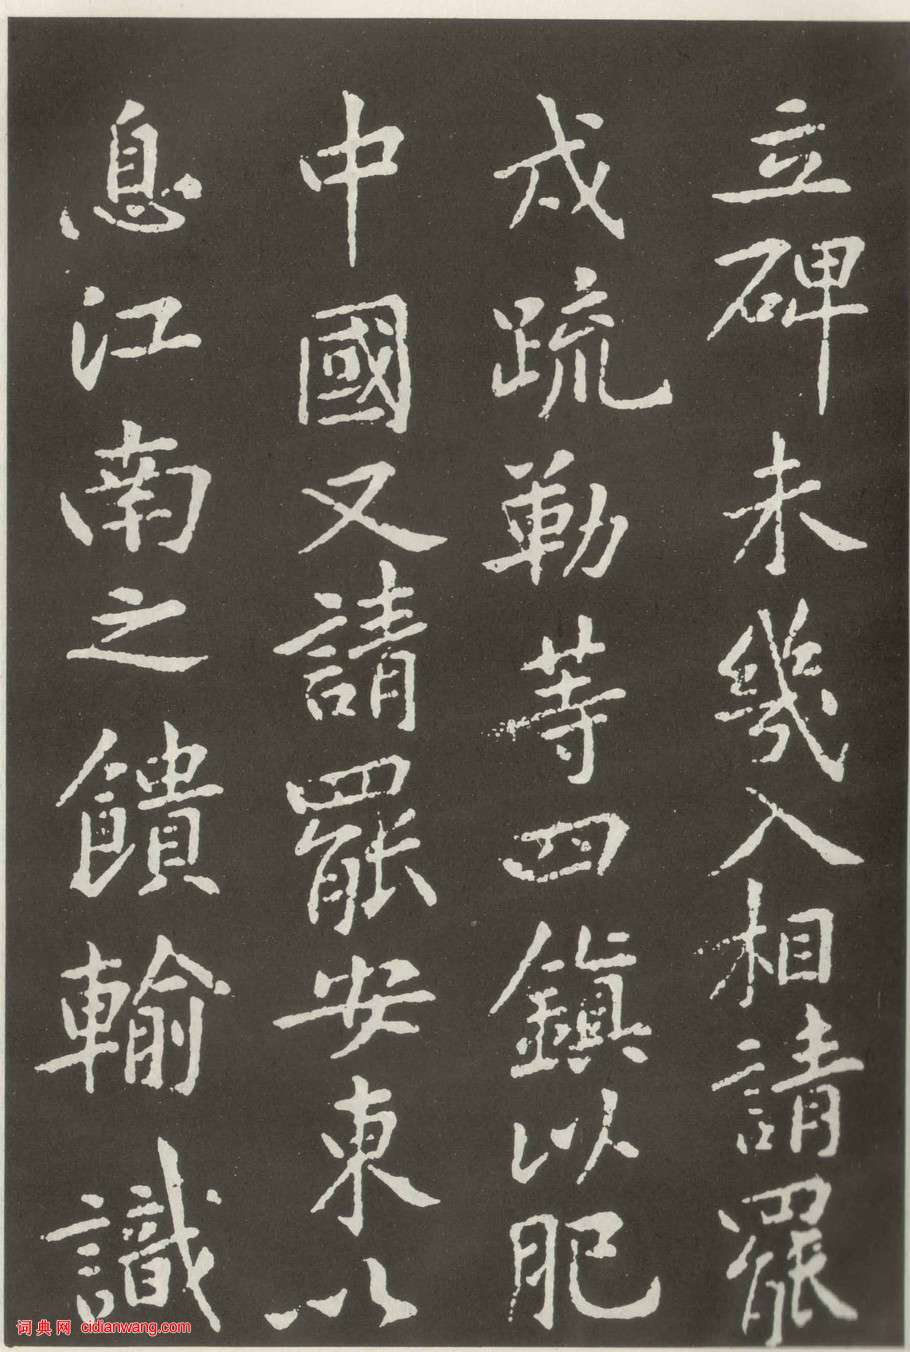 立碑未幾入相請罷
戍疏勒等四鎮以肥
中國又請罷安東以
息江南之饋輸識
词典网 cidianwang.com